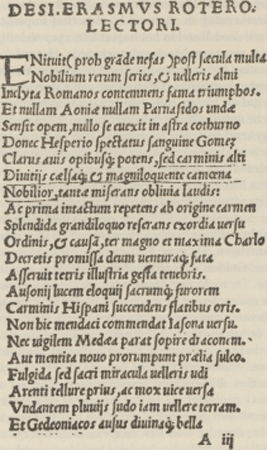 DESI. ERASMVS ROTERO:
LECTORI.
ENituit (proh grãde nefas) post sæcula multa
Nobilium rerum series, & uelleris almi
Inclyta Romanos contemnens fama triumphos.
Et nullam Aoniæ nullam Parnasidos undæ
Sensit opem, nullo se euexit in astra cothurno
Donec Hesperio spectatus sanguine Gomez
Clarus auis opibusq; potens, sed carminis alti
Diuitijs cælsaq; & magniloquente camœna
Nobilior, tantæ miserans obliuia laudis:
Ac prima intactum repetens ab origine carmen
Splendida grandiloquo reserans exordia versu
Ordinis, & causã, ter magno et maxima Charlo
Decretis promissa deum uenturaq; fata
Asseruit tetris illustria gesta tenebris.
Ausonij lucem eloquij sacrumq; furorem
Carminis Hispani succendens flatibus oris.
Non hic mendaci commendat Iasona versu.
Nec uigilem Medæa parat sopire draconem.
Aut mentita nouo prorumpunt prælia sulco.
Fulgida sed sacri miracula uelleris udi
Arenti tellure prius, ac mox vice versa
Vndantem pluuijs sudo iam uellere terram.
Et Gedeoniacos ausus diuinaq; bella
A iij